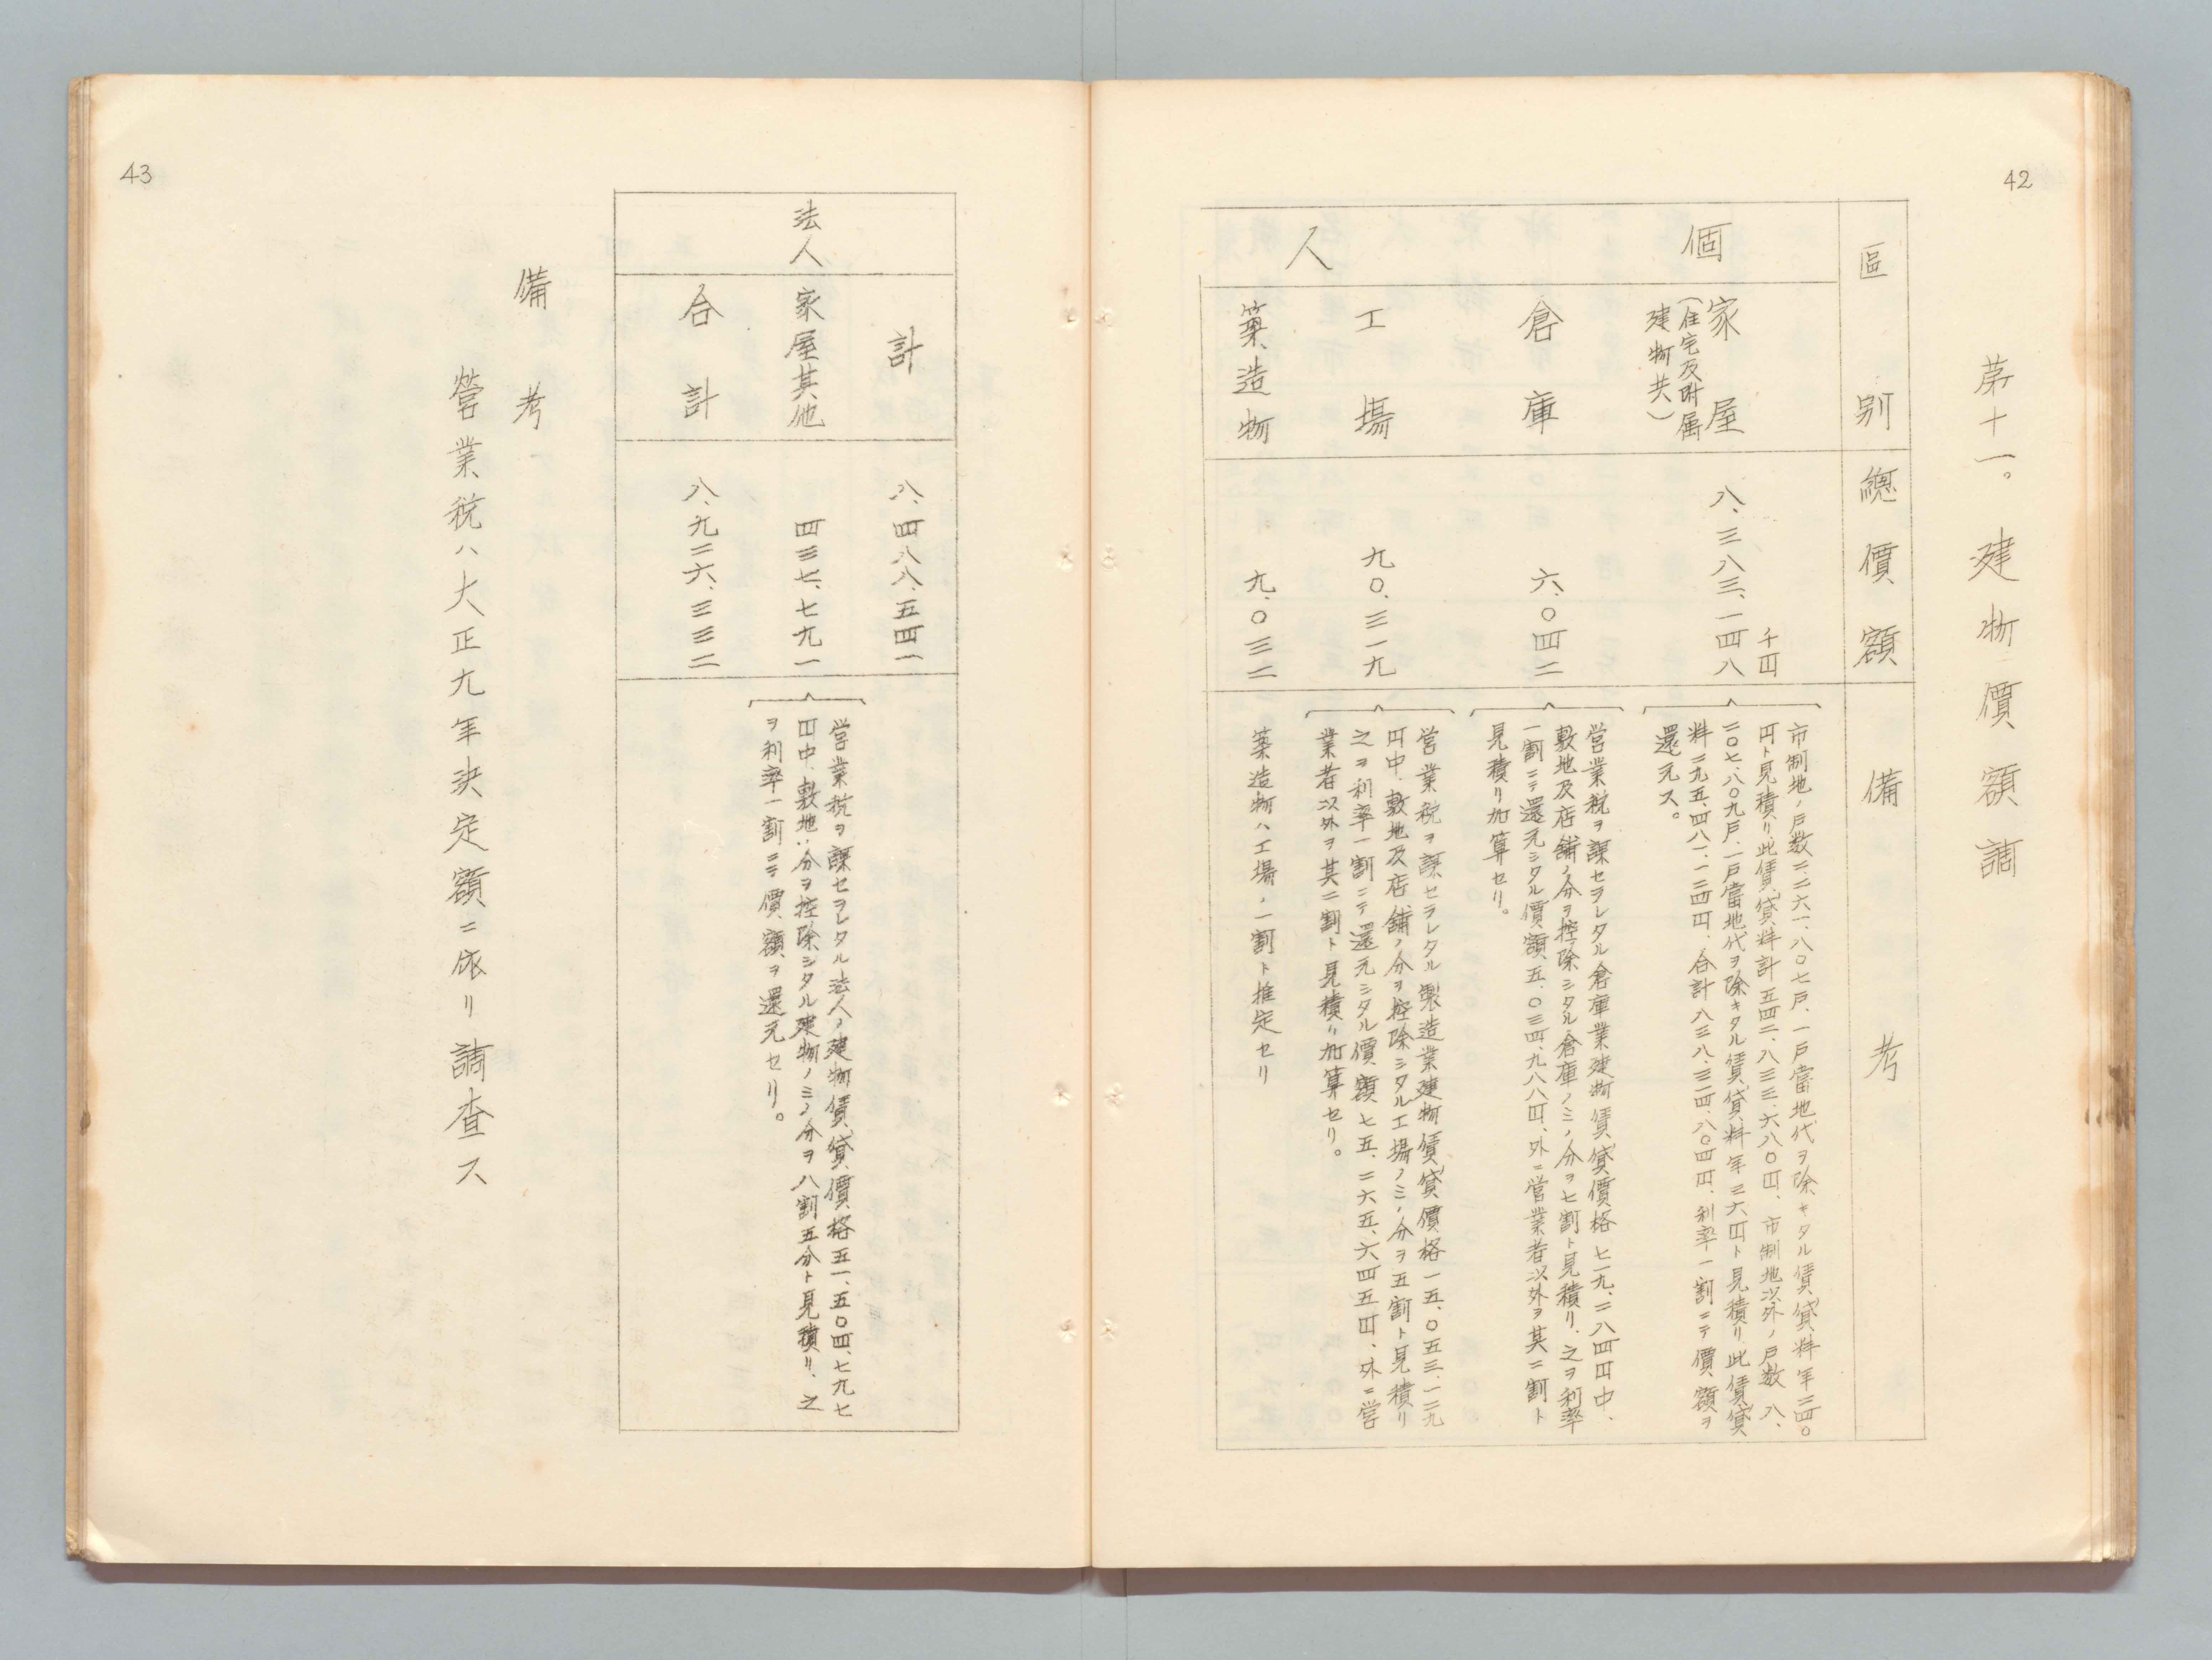 42
第十一。建物價額調
區別
總價額
備考
個人
家屋
(住宅及附属
建物共)
千円
八、三八三、一四八
市制地ノ戸数二、二六一、八〇七戸、一戸當地代ヲ除キタル賃貸料年二四〇
円ト見積リ、此賃貸料計五四二、八三三、六八〇円、市制地以外ノ戸数八、
二〇七、八〇九戸、一戸當地代ヲ除キタル賃貸料年三六円ト見積リ此賃貸
料二九五、四八一、一二四円、合計八三八、三一四、八〇四円、利率一割ニテ價額ヲ
還元ス。
倉庫
六、〇四二
営業税ヲ課セラレタル倉庫業建物賃貸價格七一九、二八四円中、
敷地及店舗ノ分ヲ控除シタル倉庫ノミノ分ヲ七割ト見積リ、之ヲ利率
一割ニテ還元シタル價額五、〇三四、九八八円、外ニ営業者以外ヲ其二割ト
見積リ加算セリ。
工場
九〇、三一九
営業税ヲ課セラレタル製造業建物賃貸價格一五、〇五三、一二九
円中、敷地及店舗ノ分ヲ控除シタル工場ノミノ分ヲ五割ト見積リ
之ヲ利率一割ニテ還元シタル價額七五、二六五、六四五円、外ニ営
業者以外ヲ其二割ト見積リ加算セリ。
築造物
九、〇三二
築造物ハ工場ノ一割ト推定セリ
43
計
八、四八八、五四一
法人
家屋其他
四三七、七九一
営業税ヲ課セラレタル法人ノ建物賃貸價格五一、五〇四、七九七
円中、敷地ノ分ヲ控除シタル建物ノミノ分ヲ八割五分ト見積リ、之
ヲ利率一割ニテ價額ヲ還元セリ。
合計
八、九二六、三三二
備考
營業税ハ大正九年決定額ニ依リ調査ス